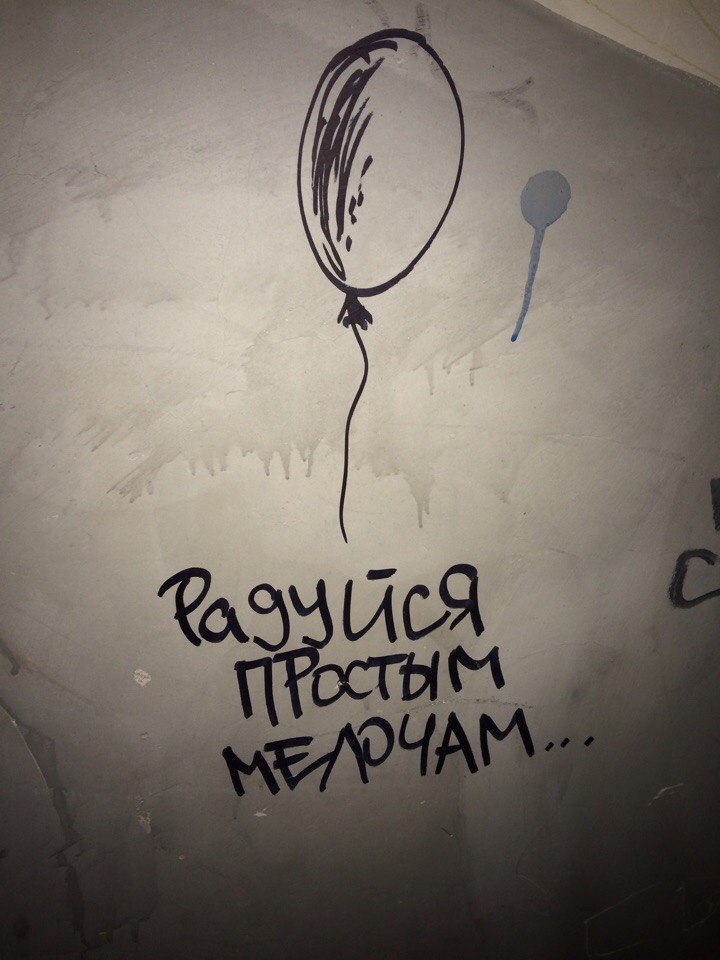 Радуйся
простым
мелочам...